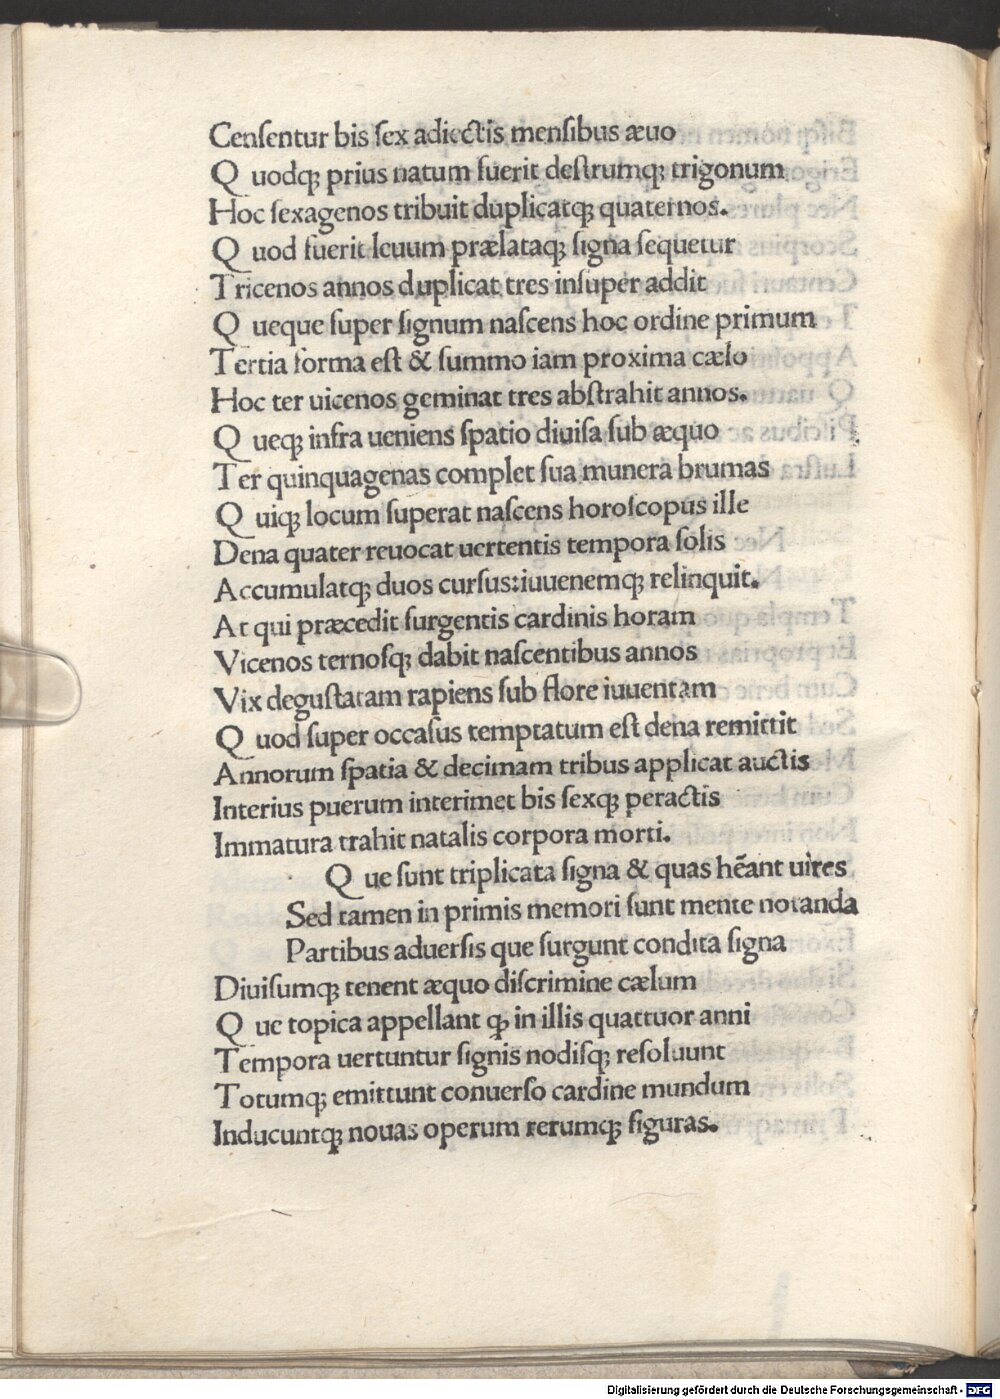 Cenſentur bis ſex adiectis menſibus æuo
Q uodqꝫ prius natum fuerit deſtrumqꝫ trigonum
Hoc ſexagenos tribuit duplicatqꝫ quaternos.
Q uod fuerit leuum prælataqꝫ ſigna ſequetur
Tricenos annos duplicat tres inſuper addit
Q ueque ſuper ſignum naſcens hoc ordine primum
Tertia forma eſt & ſummo iam proxima cælo
Hoc ter uicenos geminat tres abſtrahit annos.
Q ueqꝫ infra ueniens ſpatio diuiſa ſub æquo
Ter quinquagenas complet ſua munera brumas
Q uiqꝫ locum ſuperat naſcens horoſcopus ille
Dena quater reuocat uertentis tempora ſolis
Accumulatqꝫ duos curſus:iuuenemqꝫ relinquit.
At qui præcedit ſurgentis cardinis horam
Vicenos ternoſqꝫ dabit naſcentibus annos
Vix deguſtatam rapiens ſub flore iuuentam
Q uod ſuper occaſus temptatum eſt dena remittit
Annorum ſpatia & decimam tribus applicat auctis
Interius puerum interimet bis ſexqꝫ peractis
Immatura trahit natalis corpora morti.
Q ue ſunt triplicata ſigna & quas hēant uires
Sed tamen in primis memori ſunt mente notanda
Partibus aduerſis que ſurgunt condita ſigna
Diuiſumqꝫ tenent æquo diſcrimine cælum
Q ue topica appellant qꝫ in illis quattuor anni
Tempora uertuntur ſignis nodiſqꝫ reſoluunt
Totumqꝫ emittunt conuerſo cardine mundum
Inducuntqꝫ nouas operum rerumqꝫ figuras.
Digitalisierung gefördert durch die Deutsche Forschungsgemeinschaft - DFG